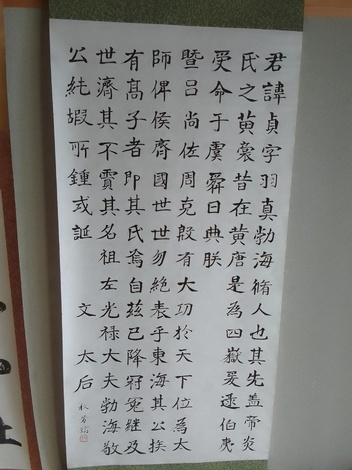 君諱貞字羽真勃海脩人也其先盖帝炎
氏之苗裔昔在黄唐是為四嶽爰逮伯夷
受命于虞舜曰典朕
暨呂尚佐周克殷有大功於天下位為太
師俾侯齊國世世勿絶表乎東海其公族
有髙子者即其氏焉自兹已降冠冕継及
世濟其不賈其名祖左光禄大夫勃海敬
公純嘏所鍾式誕 文 太后